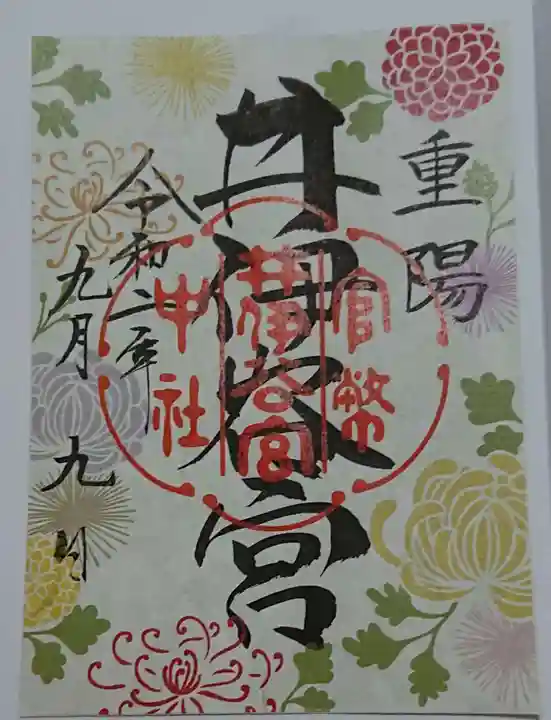 重陽
井伊谷宮
官幣
井伊谷宮
中社
令和二年
九月九日